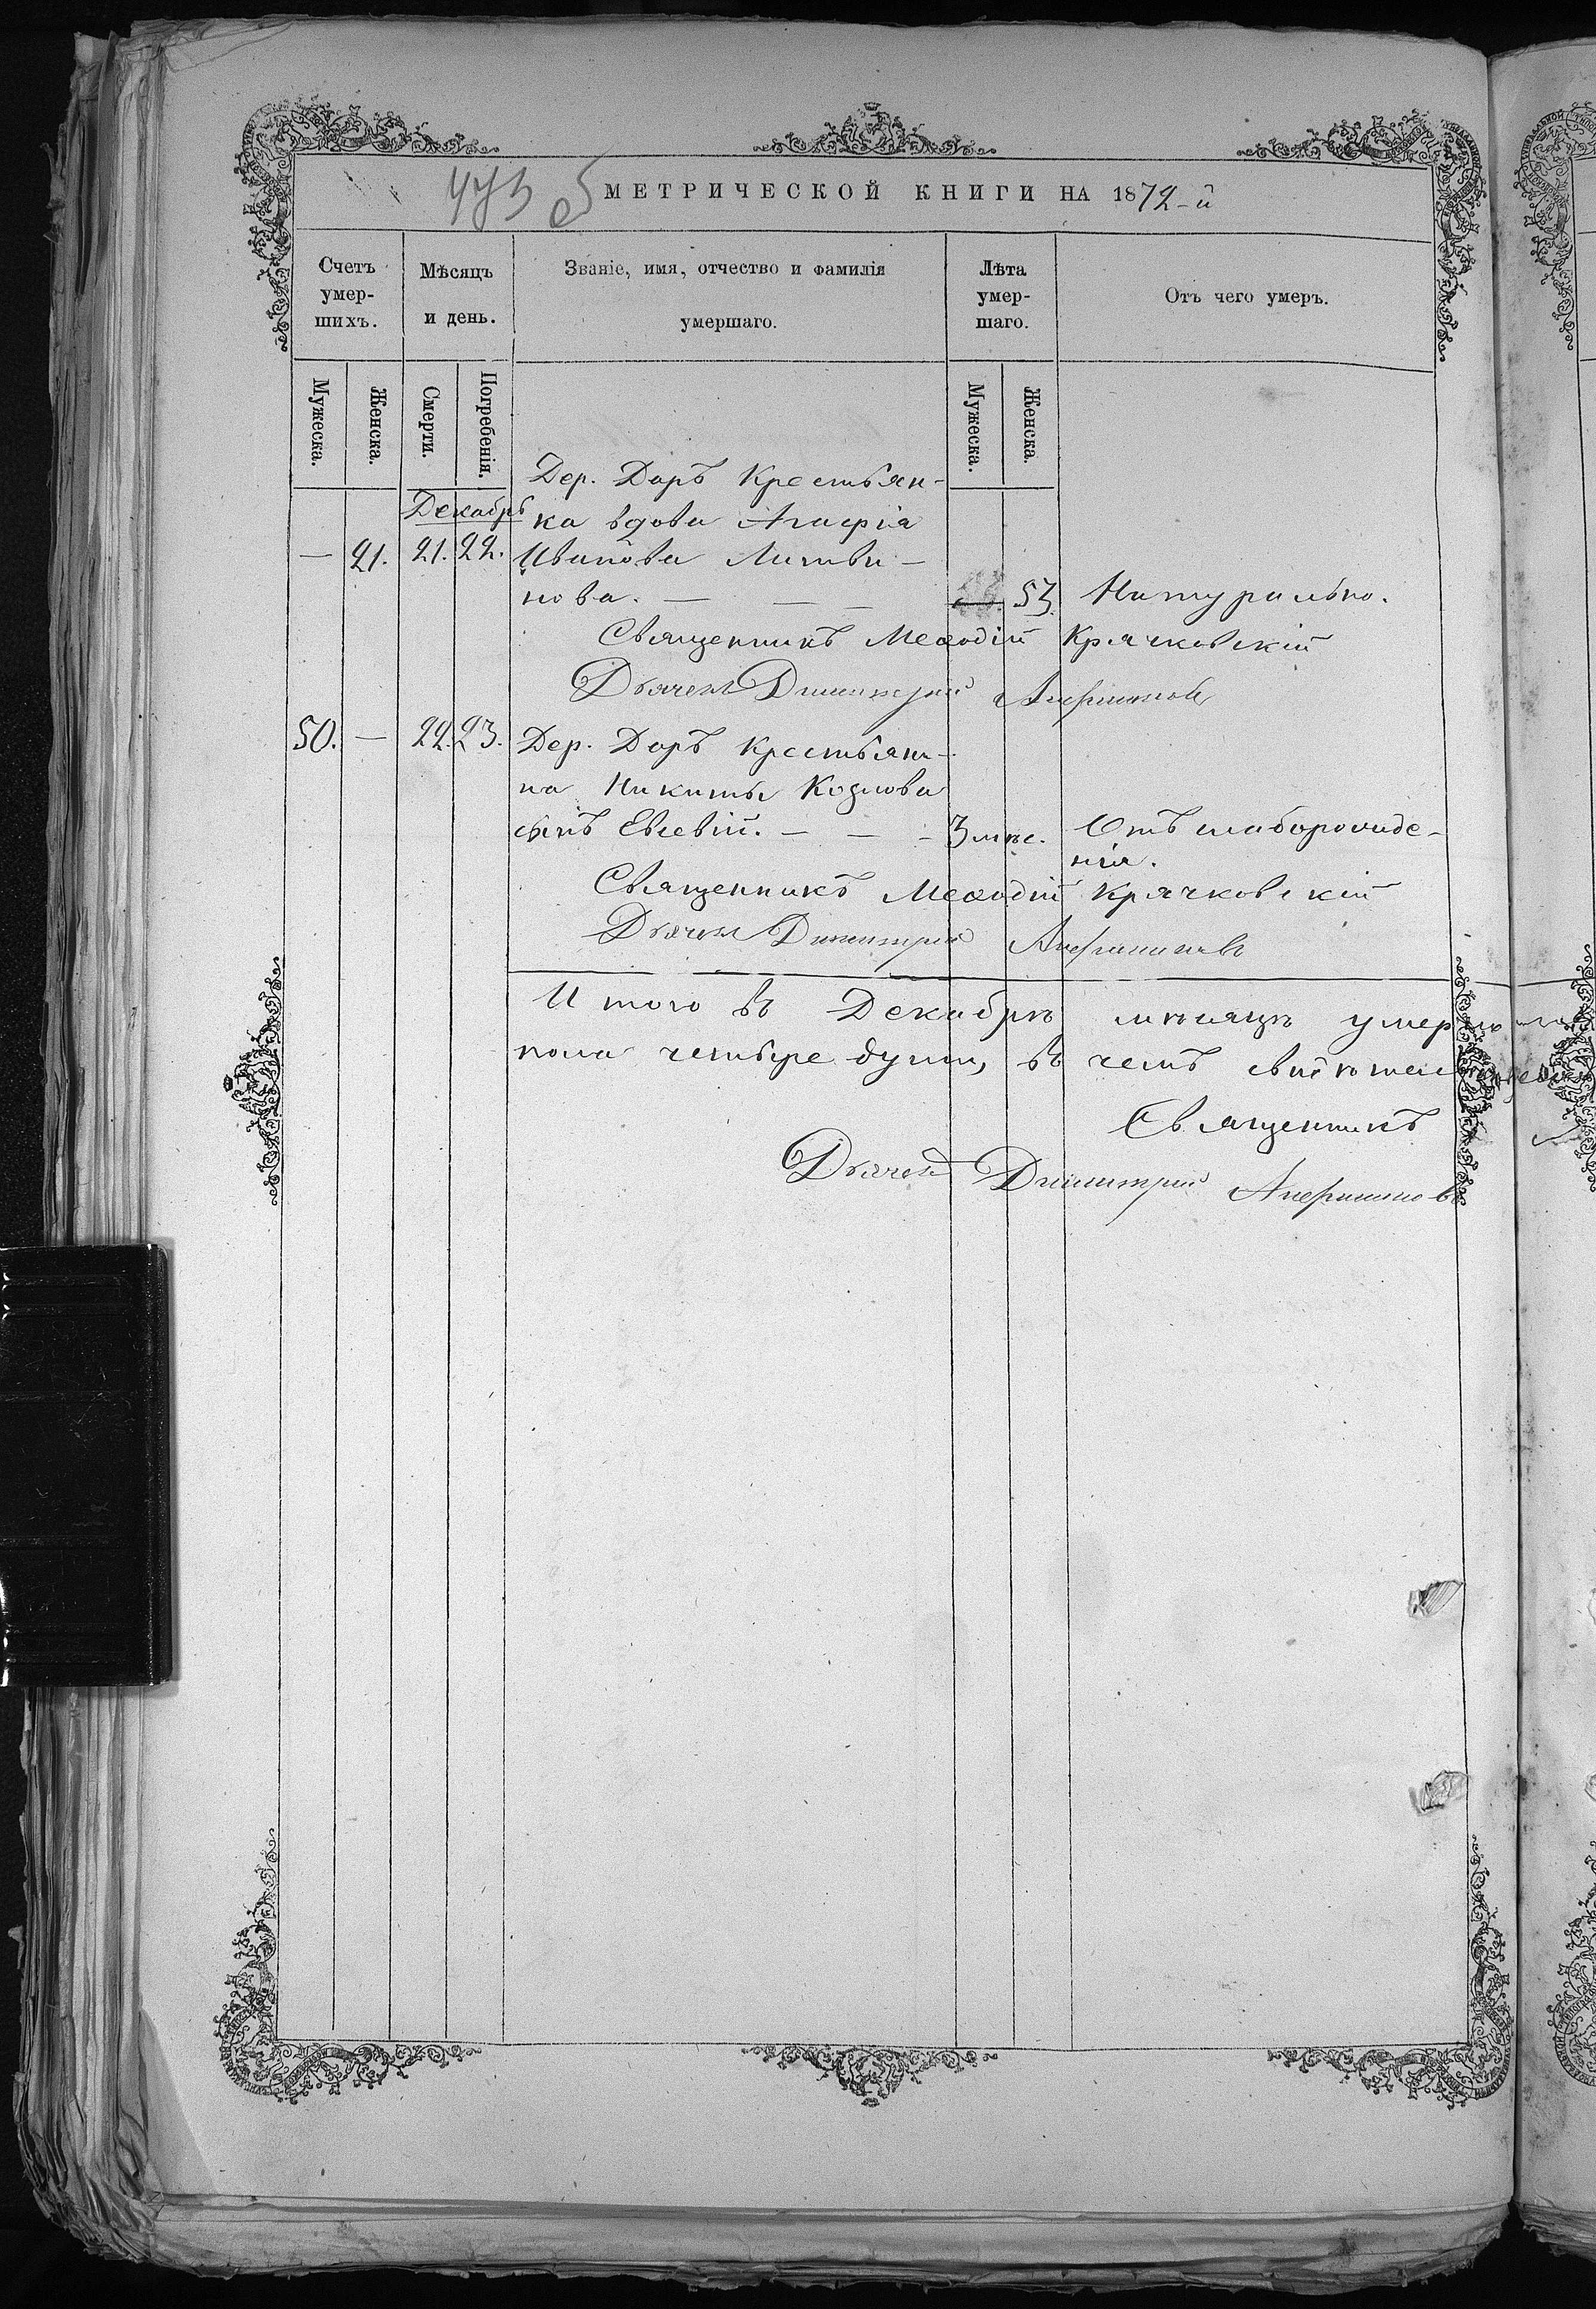 МЕТРИЧЕСКОЙ КНИГИ НА 1872-й
Счетъ умер- шихъ.
Мѣсяцъ и день.
Званіе, имя, отчество и фамилія умершаго.
Лѣта умер- шаго.
Отъ чего умеръ.
Мужеска. Женска. Смерти. Погребенія. Мужеска. Женска.
Дер. Доръ Крестьян-
Декабрь ка вдова Агафія
— 21. 21. 22. Иванова Литви-
нова. — — — 53. Натурально.
Священникъ Меѳодій Крачковскій
Дьячекъ Димитрій
50. — 22. 23. Дер. Доръ крестьяни-
на Никиты Козлова
сынъ Евсевій. — — — 3 мѣс. Отъ слаборожде-
нія.
Священникъ Меѳодій Крачковскій
Дьячекъ Димитрій
Итого въ Декабрѣ мѣсяцѣ умерло
пола четыре души, въ чемъ
Священникъ
Дьячекъ Димитрій